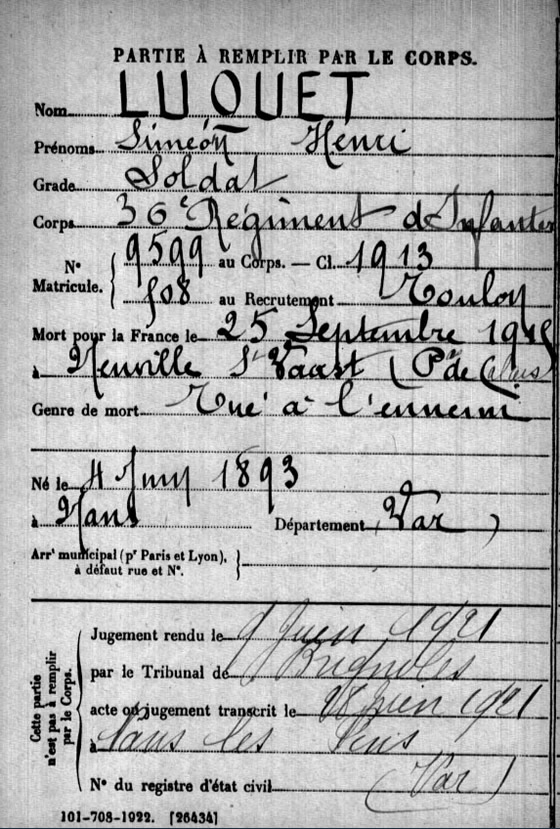 PARTIE À REMPLIR PAR LE CORPS.
Nom LUQUET
Prénoms Siméon Henri
Grade Soldat
Corps 36e Régiment d'Infanterie
N° Matricule. { 9599 au Corps. — Cl. 1913
508 au Recrutement Toulon
Mort pour la France le 25 Septembre 1915
à Neuville St Vaast (P. de Calais)
Genre de mort Tué à l'ennemi
Né le 4 Juin 1893
à Nans Département Var
Arrt municipal (pr Paris et Lyon), à défaut rue et N°. }
Cette partie n'est pas à remplir par le Corps. {
Jugement rendu le Juin 1921
par le Tribunal de Brignoles
acte ou jugement transcrit le 28 Juin 1921
à Nans les Pins
N° du registre d'état civil (Var)
101-708-1922. [26434]